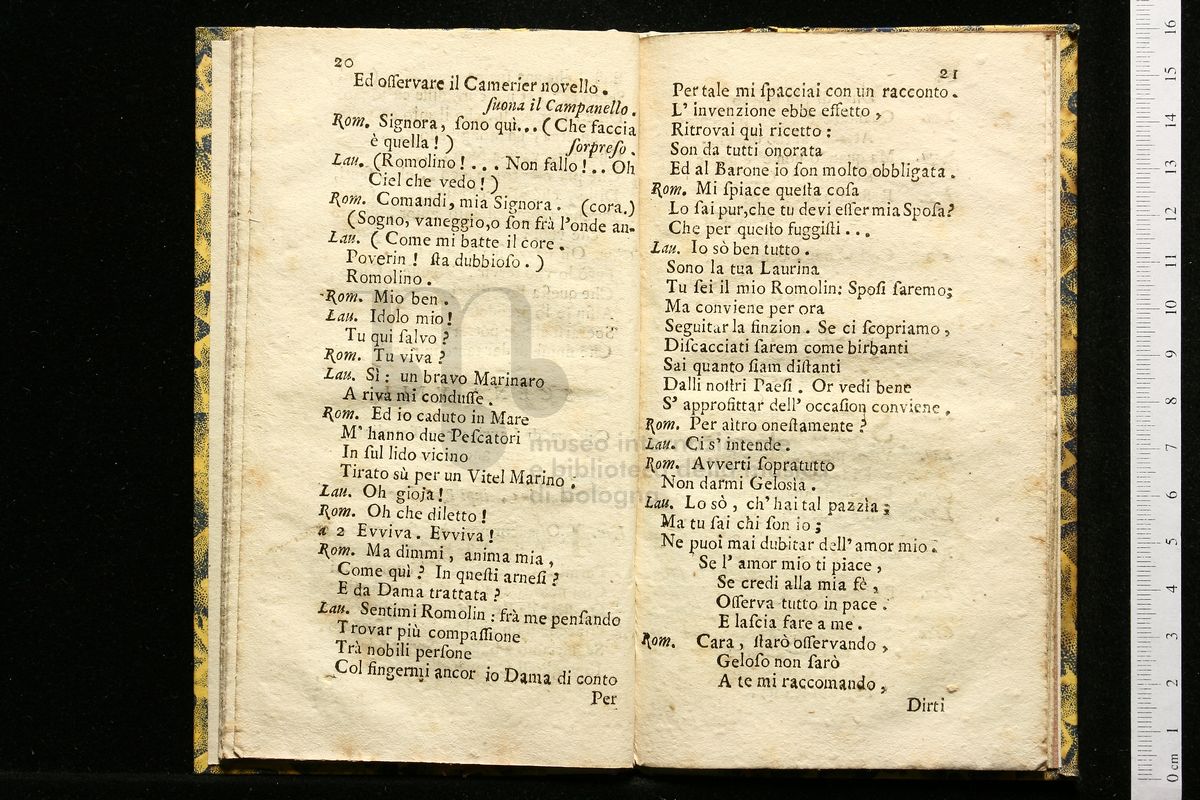 20
Ed oſſervare il Camerier novello.
ſuona il Campanello.
Rom. Signora, ſono quì... (Che faccia
è quella!) ſorpreſo.
Lau. (Romolino!... Non fallo!.. Oh
Ciel che vedo!)
Rom. Comandi, mia Signora. (cora.)
(Sogno, vaneggio,o ſon frà l'onde an-
Lau. (Come mi batte il core.
Poverin! ſta dubbioſo.)
Romolino.
Rom. Mio ben.
Lau. Idolo mio!
Tu qui ſalvo?
Rom. Tu viva?
Lau. Sì: un bravo Marinaro
A riva mi conduſſe.
Rom. Ed io caduto in Mare
M' hanno due Peſcatori
In ſul lido vicino
Tirato sù per un Vitel Marino.
Lau. Oh gioja!
Rom. Oh che diletto!
a 2 Evviva. Evviva!
Rom. Ma dimmi, anima mia,
Come quì? In queſti arneſi?
E da Dama trattata?
Lau. Sentimi Romolin: frà me penſando
Trovar più compaſſione
Trà nobili perſone
Col fingermi ancor io Dama di conto
Per
21
Per tale mi ſpacciai con un racconto.
L' invenzione ebbe effetto,
Ritrovai quì ricetto:
Son da tutti onorata
Ed al Barone io ſon molto obbligata.
Rom. Mi ſpiace queſta coſa
Lo ſai pur,che tu devi eſſer mia Spoſa?
Che per queſto fuggiſti...
Lau. Io sò ben tutto.
Sono la tua Laurina
Tu ſei il mio Romolin: Spoſi ſaremo;
Ma conviene per ora
Seguitar la finzion. Se ci ſcopriamo,
Diſcacciati ſarem come birbanti
Sai quanto ſiam diſtanti
Dalli noſtri Paeſi. Or vedi bene
S' approfittar dell' occaſion conviene.
Rom. Per altro oneſtamente?
Lau. Ci s' intende.
Rom. Avverti ſopratutto
Non darmi Gelosìa.
Lau. Lo sò, ch' hai tal pazzìa;
Ma tu ſai chi ſon io;
Ne puoi mai dubitar dell' amor mio.
Se l' amor mio ti piace,
Se credi alla mia fè,
Oſſerva tutto in pace.
E laſcia fare a me.
Rom. Cara, ſtarò oſſervando,
Geloſo non ſarò
A te mi raccomando,
Dirti